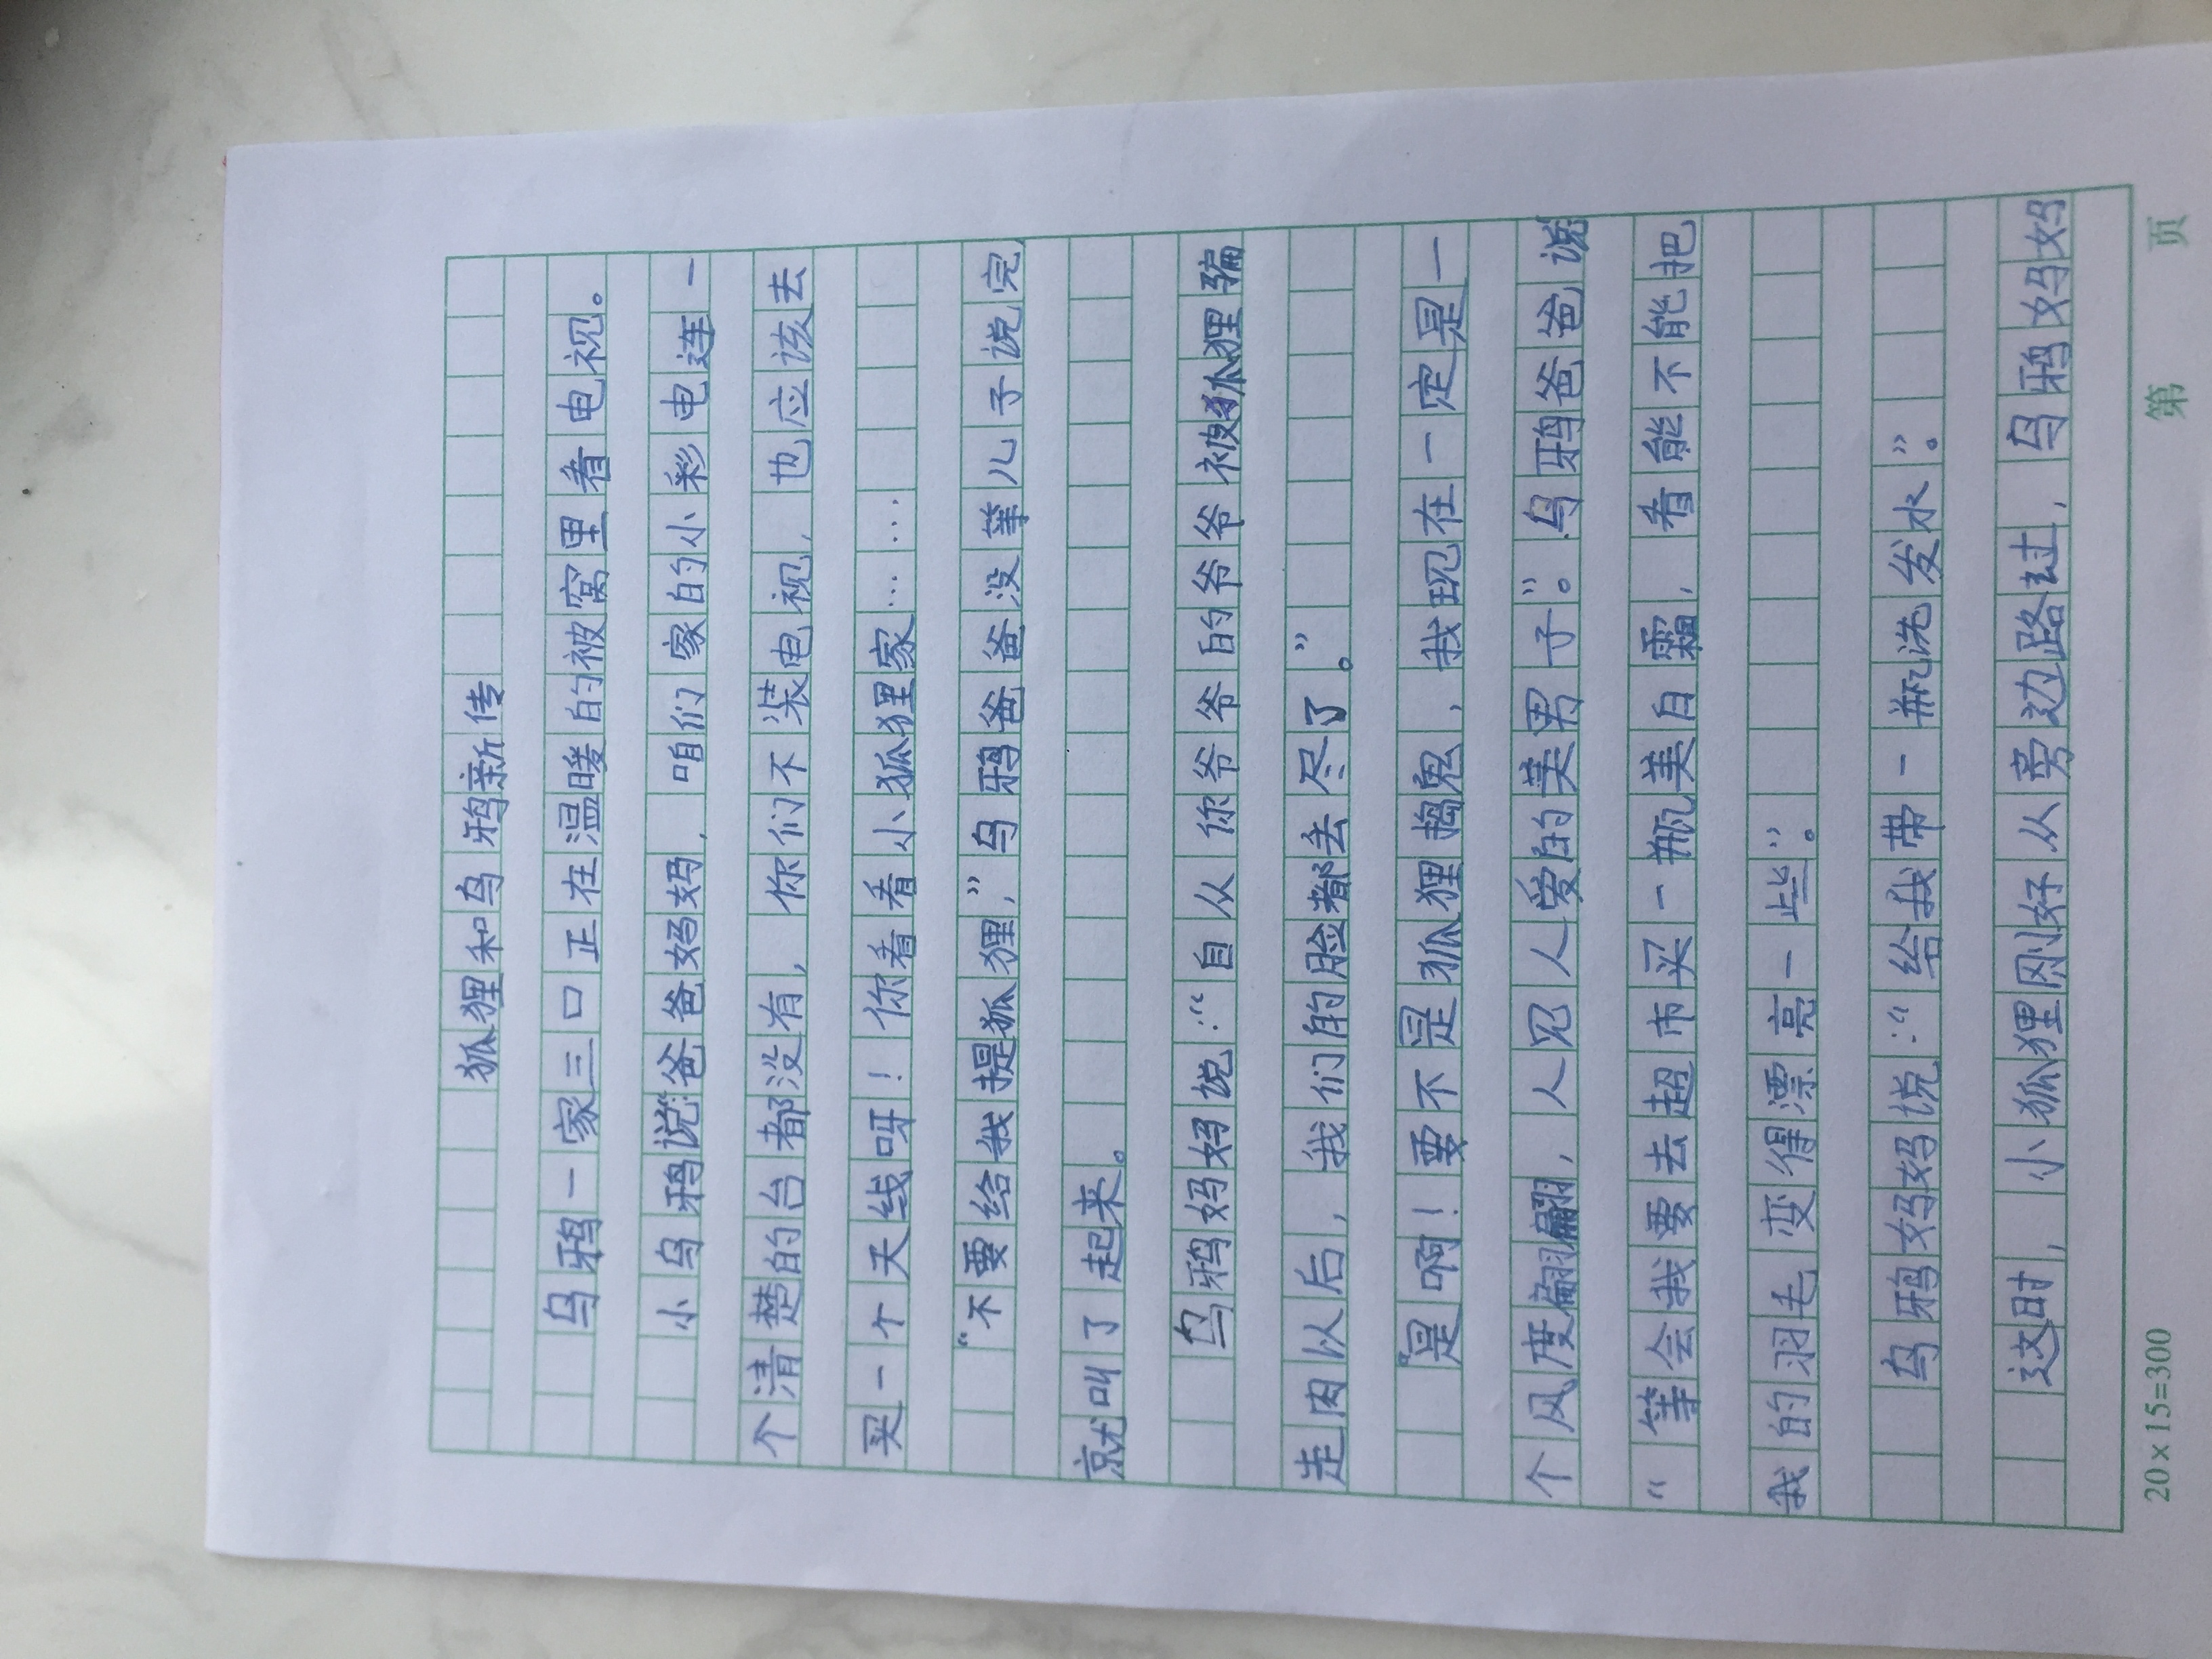 狐狸和乌鸦新传
乌鸦一家三口正在温暖的被窝里看电视。
小乌鸦说“爸爸妈妈，咱们家的小彩电连一
个清楚的台都没有，你们不装电视，也应该去
买一个天线呀！你看看小狐狸家……
“不要给我提狐狸，”乌鸦爸爸没等儿子说完
就叫了起来。
乌鸦妈妈说：“自从你爷爷的爷爷被狐狸骗
走肉以后，我们的脸都丢尽了。”
“是啊！要不是狐狸捣鬼，我现在一定是一
个风度翩翩，人见人爱的美男子”。乌鸦爸爸说
“等会我要去超市买一瓶美白霜，看能不能把
我的羽毛变得漂亮一些”。
乌鸦妈妈说：“给我带一瓶洗发水”。
这时，小狐狸刚好从旁边路过，乌鸦妈妈
20×15=300 第 页